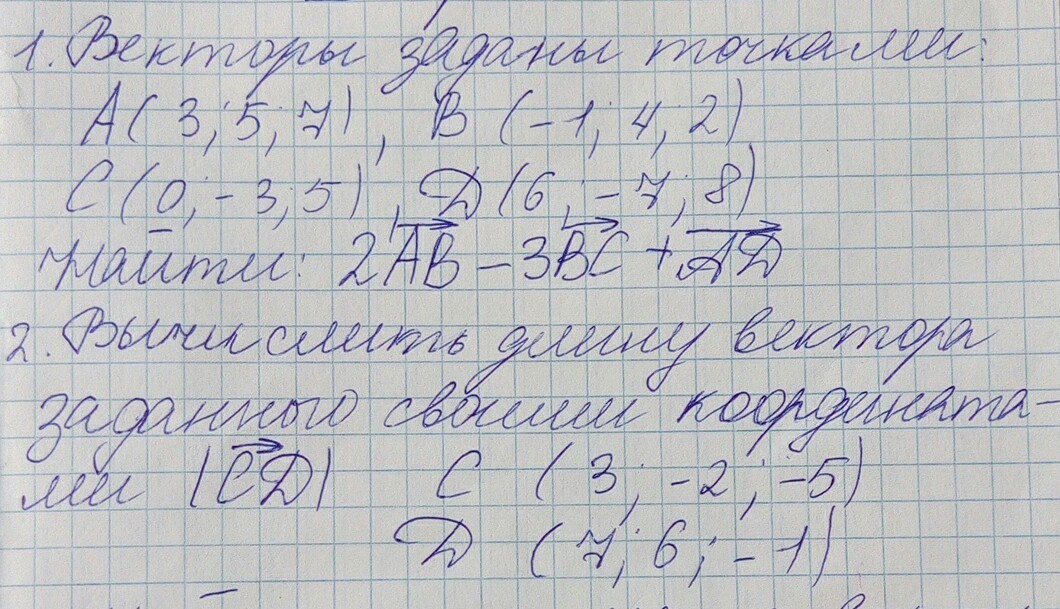 1. Векторы заданы точками:
A(3;5;7), B(-1;4;2)
C(0;-3;5), D(6;-7;8)
Найти: 2AB - 3BC + AD
2. Вычислить длину вектора
заданного своими координата-
ми |CD| C (3;-2;-5)
D (7;6;-1)